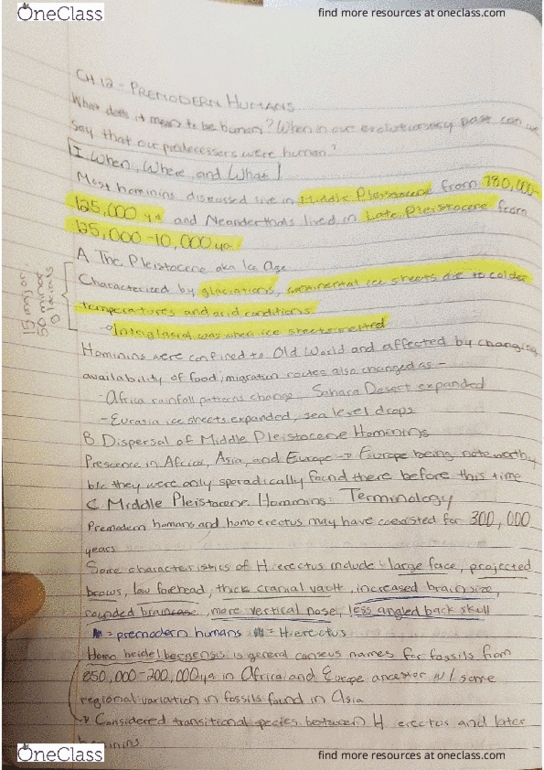 OneClass
find more resources at oneclass.com
CH 12 - PREMODERN HUMANS
What does it mean to be human? When in our evolutionary past can we
say that our predecessors were human?
I. When, Where, and What
Most hominins discussed live in Middle Pleistocene from 780,000-
125,000 ya and Neanderthals lived in Late Pleistocene from
125,000-10,000 ya
A. The Pleistocene aka Ice Age
Characterized by glaciations, continental ice sheets due to colder
temperatures and arid conditions
15 major,
50 minor
glacials
-Interglacial was when ice sheets melted
Hominins were confined to Old World and affected by changing
availability of food; migration routes also changed as-
-Africa rainfall patterns change, Sahara Desert expanded
-Eurasia ice sheets expanded, sea level drops
B. Dispersal of Middle Pleistocene Hominins
Prescence in Africa, Asia, and Europe → Europe being noteworthy
b/c they were only sporadically found there before this time
C. Middle Pleistocene Hominins: Terminology
Premodern humans and homo erectus may have coexisted for 300,000
years
Some characteristics of H. erectus include: large face, projected
brows, low forehead, thick cranial vault, increased brain size,
rounded braincase, more vertical nose, less angled back skull
= premodern humans = H. erectus
Homo heidelbergensis is general consensus names for fossils from
850,000-200,000 ya in Africa and Europe ancestor w/ some
regional variation in fossils found in Asia
→ Considered transitional species between H. erectus and later
hominins
OneClass
find more resources at oneclass.com